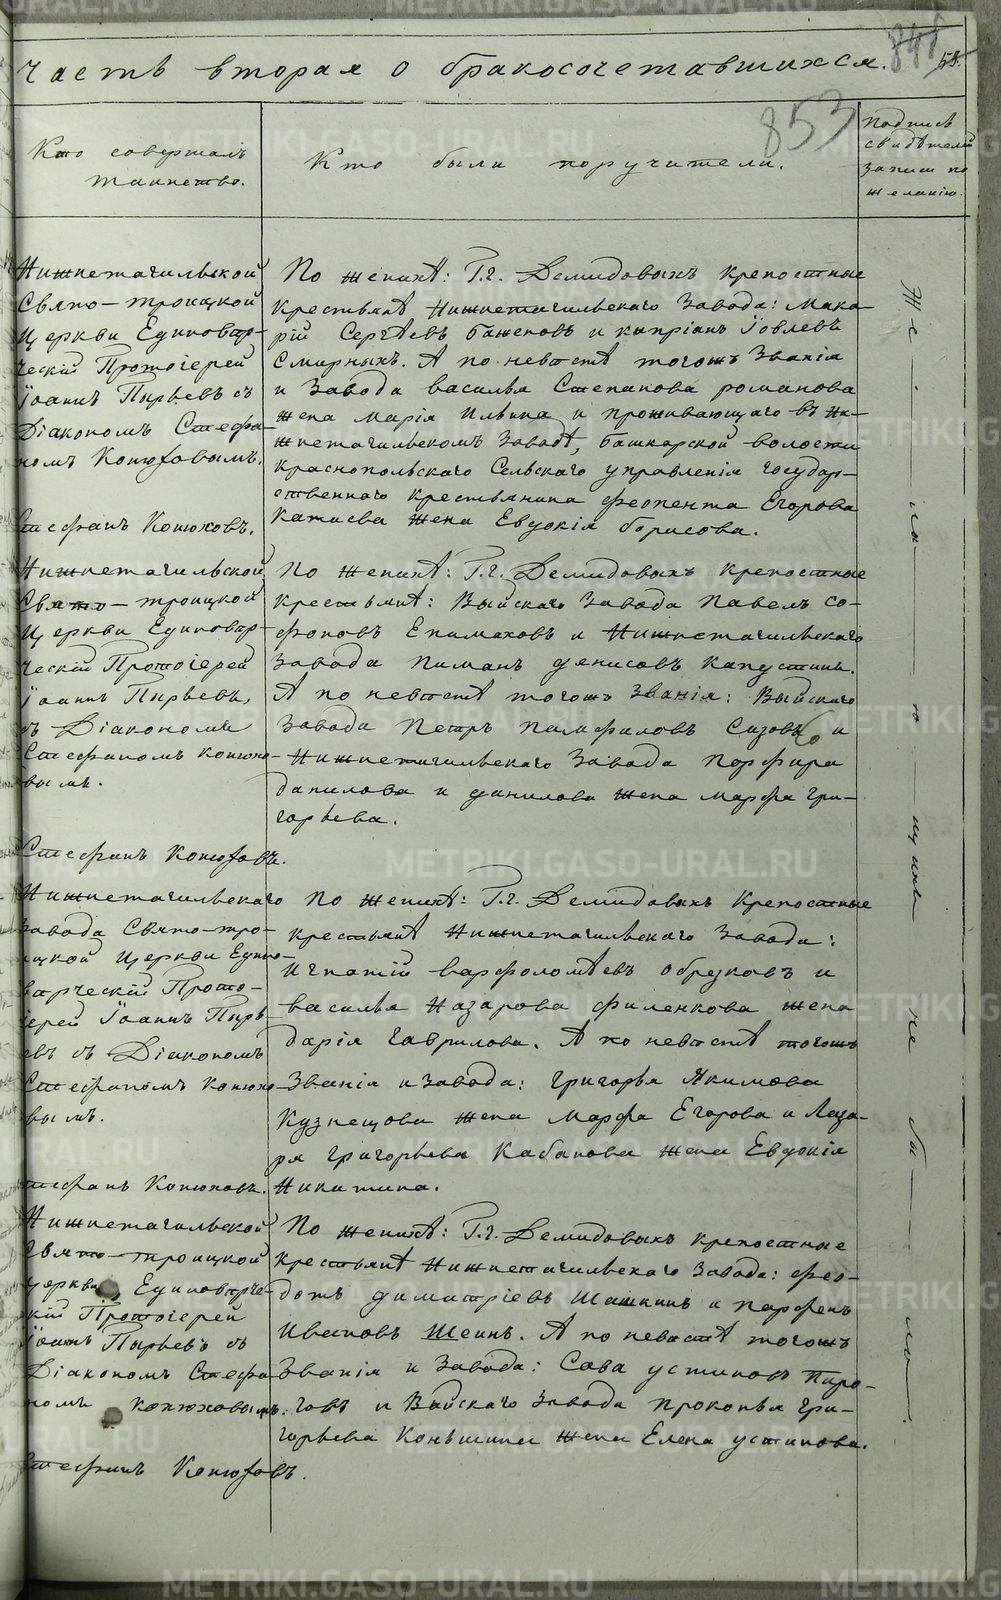 Часть вторая о бракосочетавшихся.
853
Кто совершалъ
таинство.
Кто были поручители.
Подпись
свидѣтелей
записи по
желанію.
Нижнетагильской
Свято-троицкой
Церкви Единовѣр-
ческій Протоіерей
Іоаннъ Пырьевъ съ
Діакономъ Стефа-
номъ Конюховымъ.
Стефанъ Конюховъ.
По женихѣ: Г.г. Демидовыхъ крепостные
крестьянѣ Нижнетагильскаго Завода: Мака-
рій Сергѣевъ Баженовъ и кипріанъ Іовлевъ
Смирныхъ. А по невѣстѣ тогожъ Званія
и Завода василья Степанова романова
жена марія Ильина и проживающаго въ Ни-
жнетагильскомъ Заводѣ, башкарской волости
краснопольскаго Сельскаго управленія государ-
ственнаго крестьянина феопента Егорова
катаева жена Евдокія борисова.
Нижнетагильской
Свято-троицкой
Церкви Единовѣр-
ческій Протоіерей
Іоаннъ Пырьевъ,
съ Діакономъ
Стефаномъ конюхо-
вымъ.
Стефанъ Конюховъ.
По женихѣ: Г.г. Демидовыхъ крепостные
крестьянѣ: Выйскаго Завода Павелъ со-
фоновъ Епимаховъ и Нижнетагильскаго
Завода пиманъ денисовъ капустинъ.
А по невѣстѣ тогожъ Званія: Выйскаго
Завода Петръ памфиловъ Сизовъ и
Нижнетагильскаго Завода Порфира
данилова и данилова жена марфа гри-
горьева.
Нижнетагильскаго
завода Свято-тро-
ицкой Церкви Едино-
вѣрческій Прото-
іерей Іоаннъ Пырь-
евъ съ Діакономъ
Стефаномъ конюхо-
вымъ.
Стефанъ Конюховъ.
По женихѣ: Г.г. Демидовыхъ крепостные
крестьянѣ Нижнетагильскаго Завода:
Игнатій варфоломѣевъ обрезковъ и
василья Назарова филенкова жена
дарія гаврилова. А по невѣстѣ тогожъ
Званія и завода: григорья Якимова
Кузнецова жена марфа Егорова и Лаза-
ря григорьева Кабанова жена Евдокія
Никитина.
Нижнетагильской
Свято-троицкой
церкви Единовѣрче-
скій Протоіерей
Іоаннъ Пырьевъ съ
Діакономъ Стефа-
номъ конюховымъ.
Стефанъ Конюховъ.
По женихѣ: Г.г. Демидовыхъ крепостные
крестьянѣ Нижнетагильскаго Завода: фео-
дотъ димитріевъ Шашкинъ и парфенъ
Ивановъ Шеинъ. А по невѣстѣ тогожъ
Званія и Завода: Сава устиновъ пиро-
говъ и Выйскаго Завода прокопья гри-
горьева Коньшина жена Елена устинова.